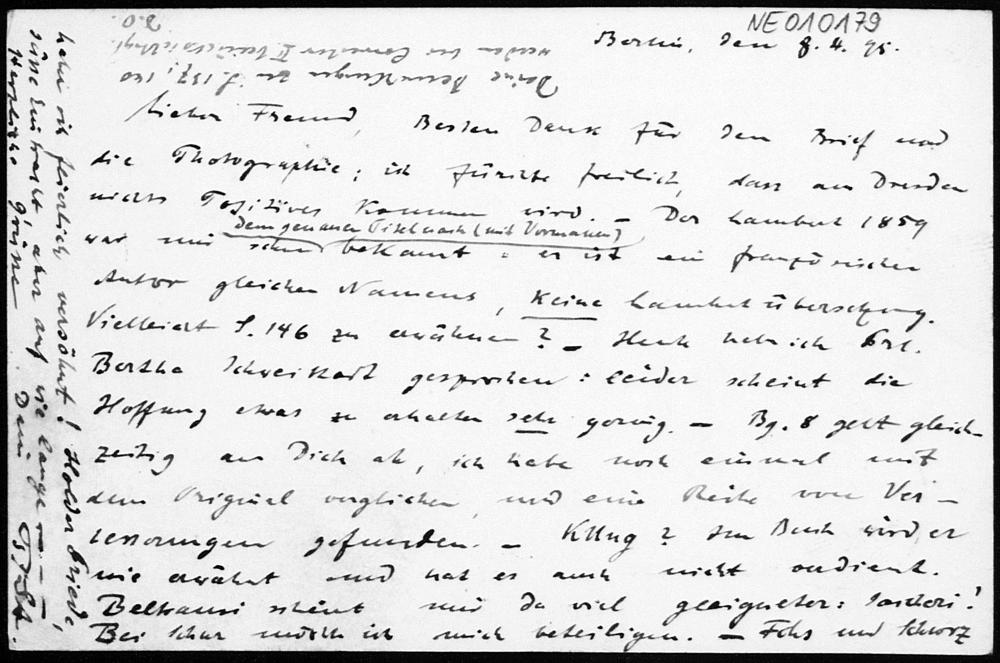 NE010179
Berlin, den 8. 4. 95.
Deine Bemerkungen zu S. 137, 140
werden bei Correctur II berücksichtigt.
D. O.
Lieber Freund, Besten Dank für den Brief und
die Photographie; ich fürchte freilich, dass aus Dresden
nichts Positives kommen wird. — Der Lambert 1859
dem genauen Titel nach (mit Vornamen)
war mir schon bekannt: es ist ein französischer
Autor gleichen Namens, keine Lambertübersetzung.
Vielleicht S. 146 zu erwähnen? — Heute habe ich Frl.
Bertha gesprochen: leider scheint die
Hoffnung etwas zu erhalten sehr gering. — Bg. 8 geht gleich-
zeitig an Dich ab, ich habe noch einmal mit
dem Original verglichen und eine Reihe von Ver-
besserungen gefunden. — Klügel? Im Buch wird er
nie erwähnt und hat es auch nicht verdient.
scheint mir da viel geeigneter: Saccheri!
Bei Schur möchte ich mich beteiligen. — und Schwarz
haben sich feierlich versöhnt! Holder Friede,
süsse Eintracht, aber auf wie lange —
Herzliche Grüsse Dein